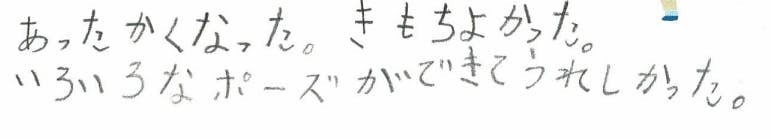 あったかくなった。きもちよかった。
いろいろなポーズができてうれしかった。